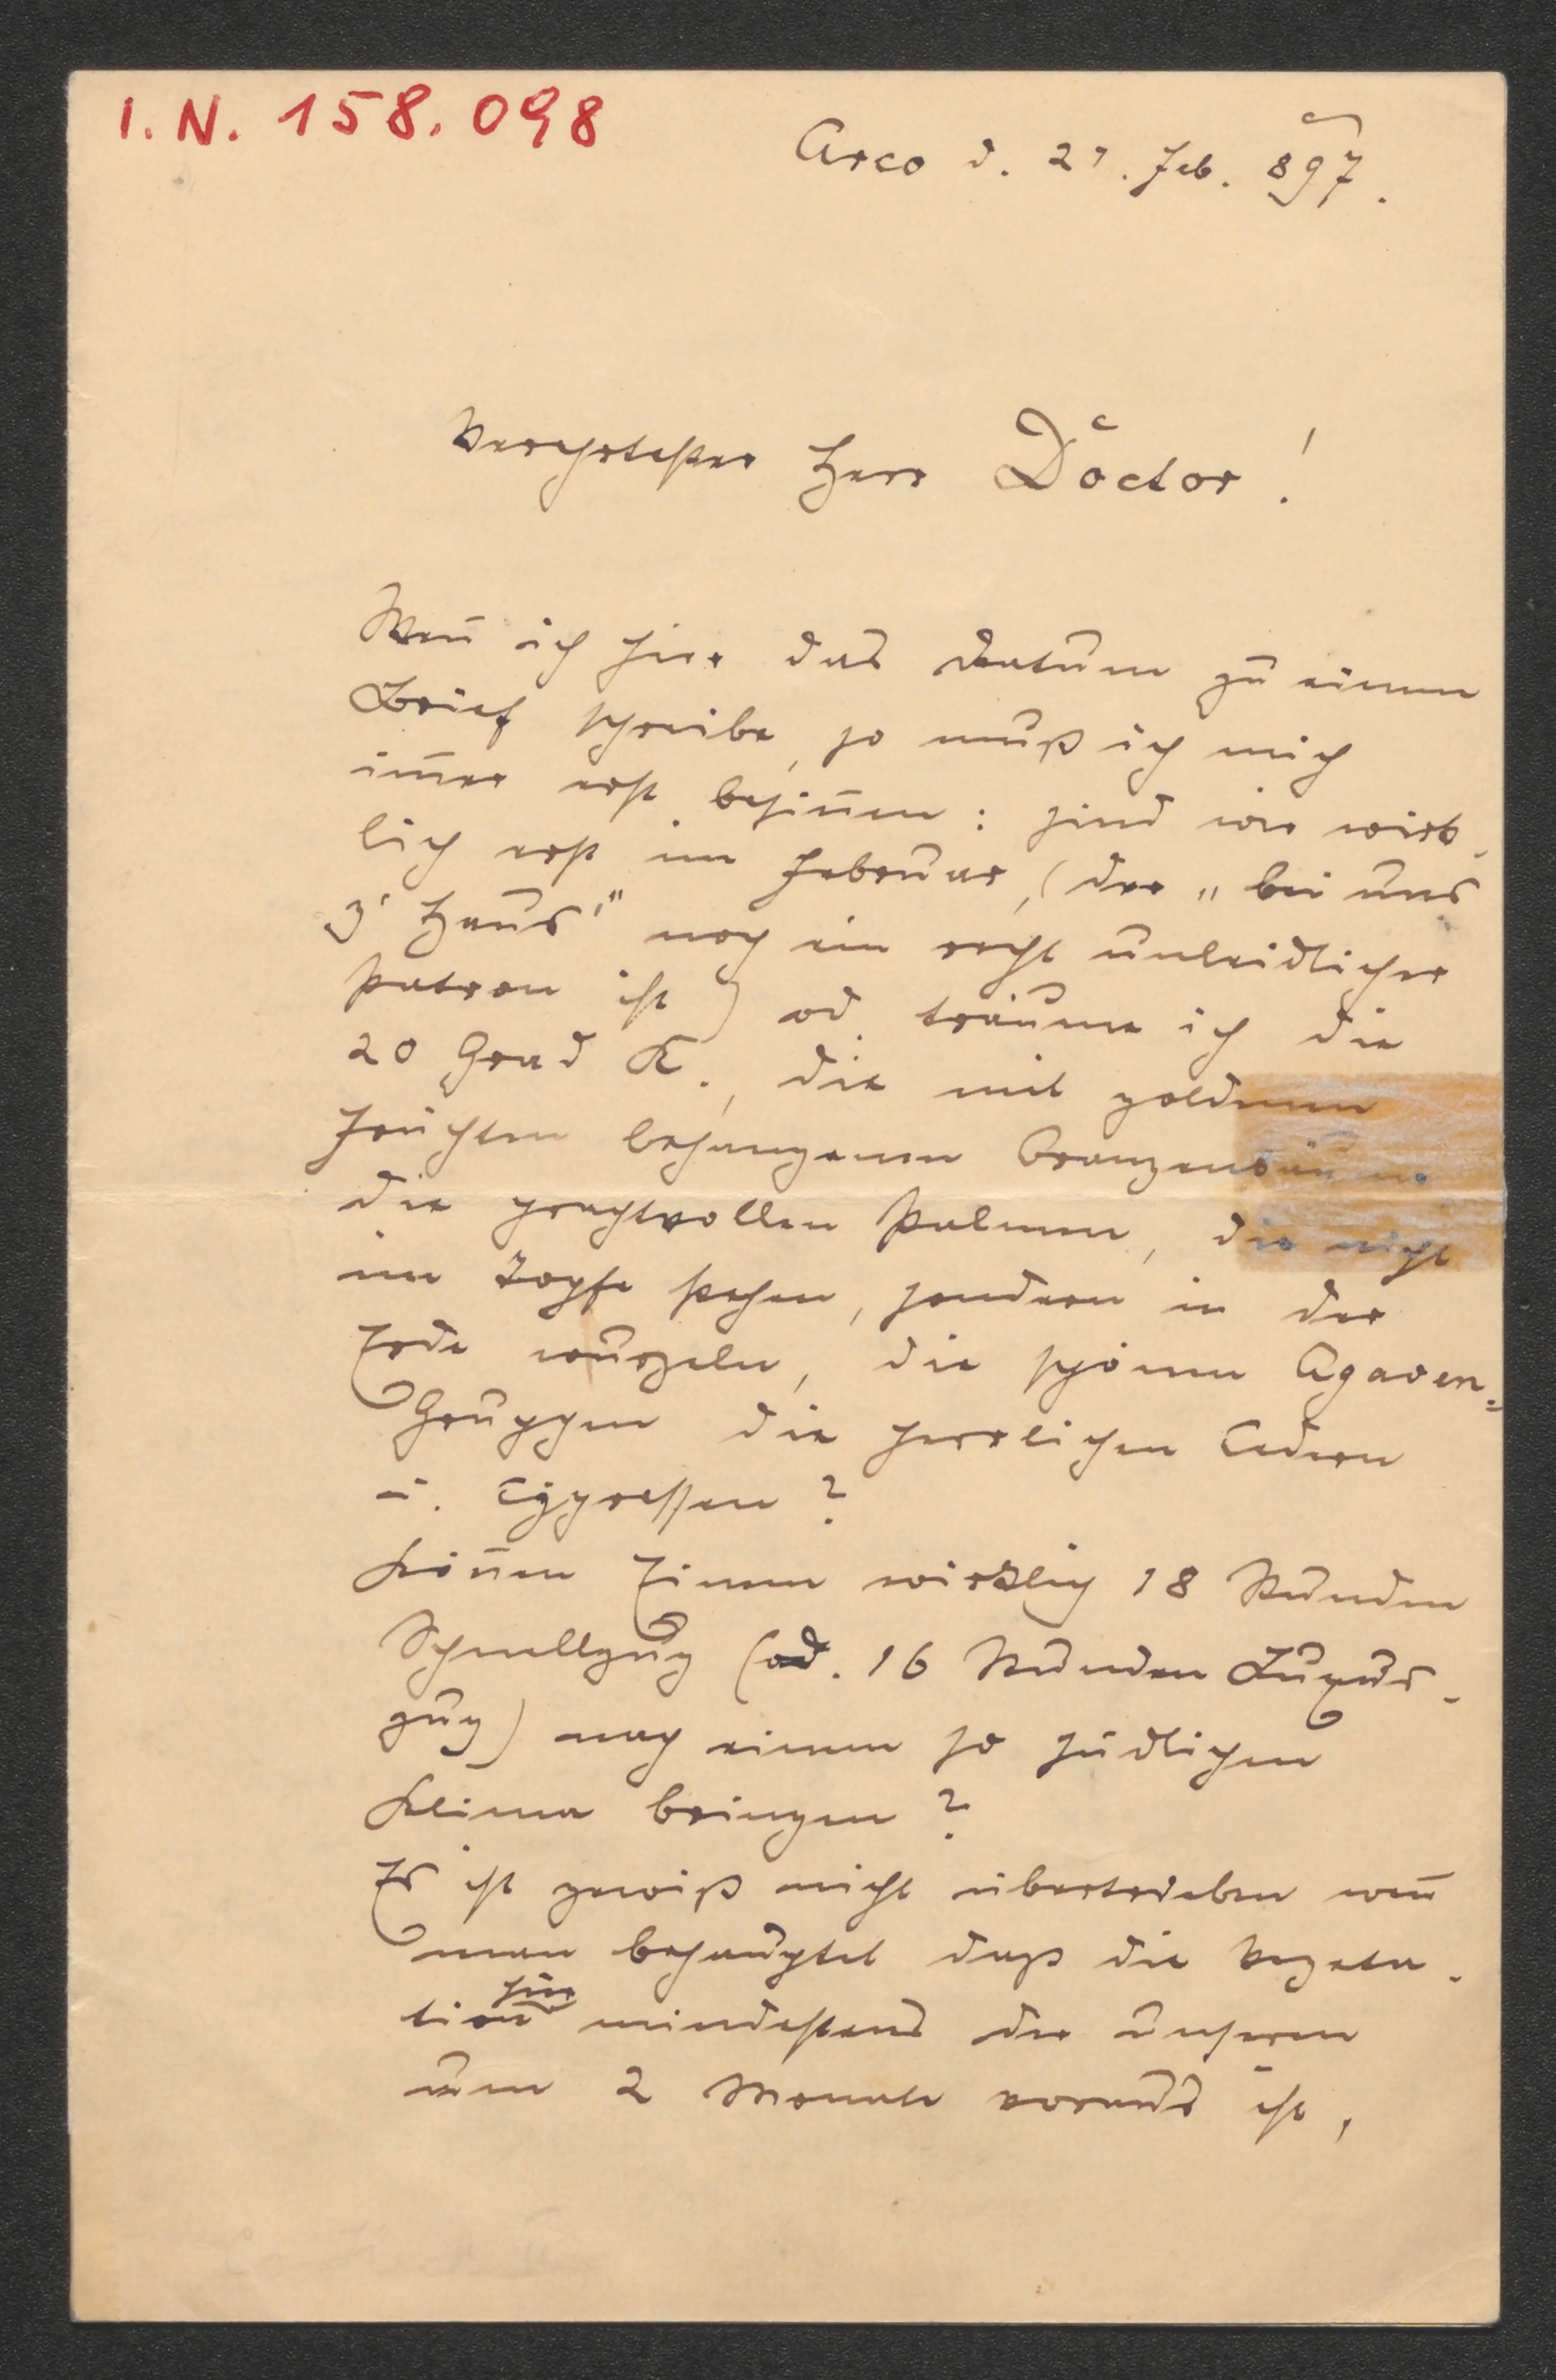 I.N. 158.098
Arco d. 27. Feb. 897.
Verehrtester Herr Doctor!
Wen̄ ich hier das Datum zu einem
Brief schreibe, so muß ich mich
im̄er erst besin̄en: sind wir wirk-
lich erst im Februar, (der „bei uns
z' Haus'“ noch ein recht unleidlicher
Patron ist) od. träume ich die
20 Grad R., die mit goldenen
Früchten behangenen Orangenbäume
die prachtvollen Palmen, die nicht
im Topfe stehen, sondern in der
Erde wurzeln, die schönen Agaven-
Gruppen die herrlichen Cedern
u. Cypressen?
Kön̄en Einem wirklich 18 Stunden
Schnellzug (od. 16 Stunden Luxus-
zug) nach einem so südlichen
Klima bringen?
Es ist gewiß nicht übertrieben wen̄
man behauptet daß die Vegeta-
tion hier mindestens der unseren
um 2 Monate voraus ist,